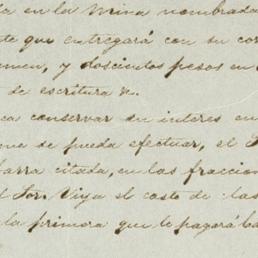 da en la Mina nombrada
te que entregará con su cor
men, y doscientos pesos en
de escritura &.
ca conservar su interes en
me de pueda efectuar, el
barra citada, en las fraccion
l Sor. Viya el costo de las
la primera que le pagará ba